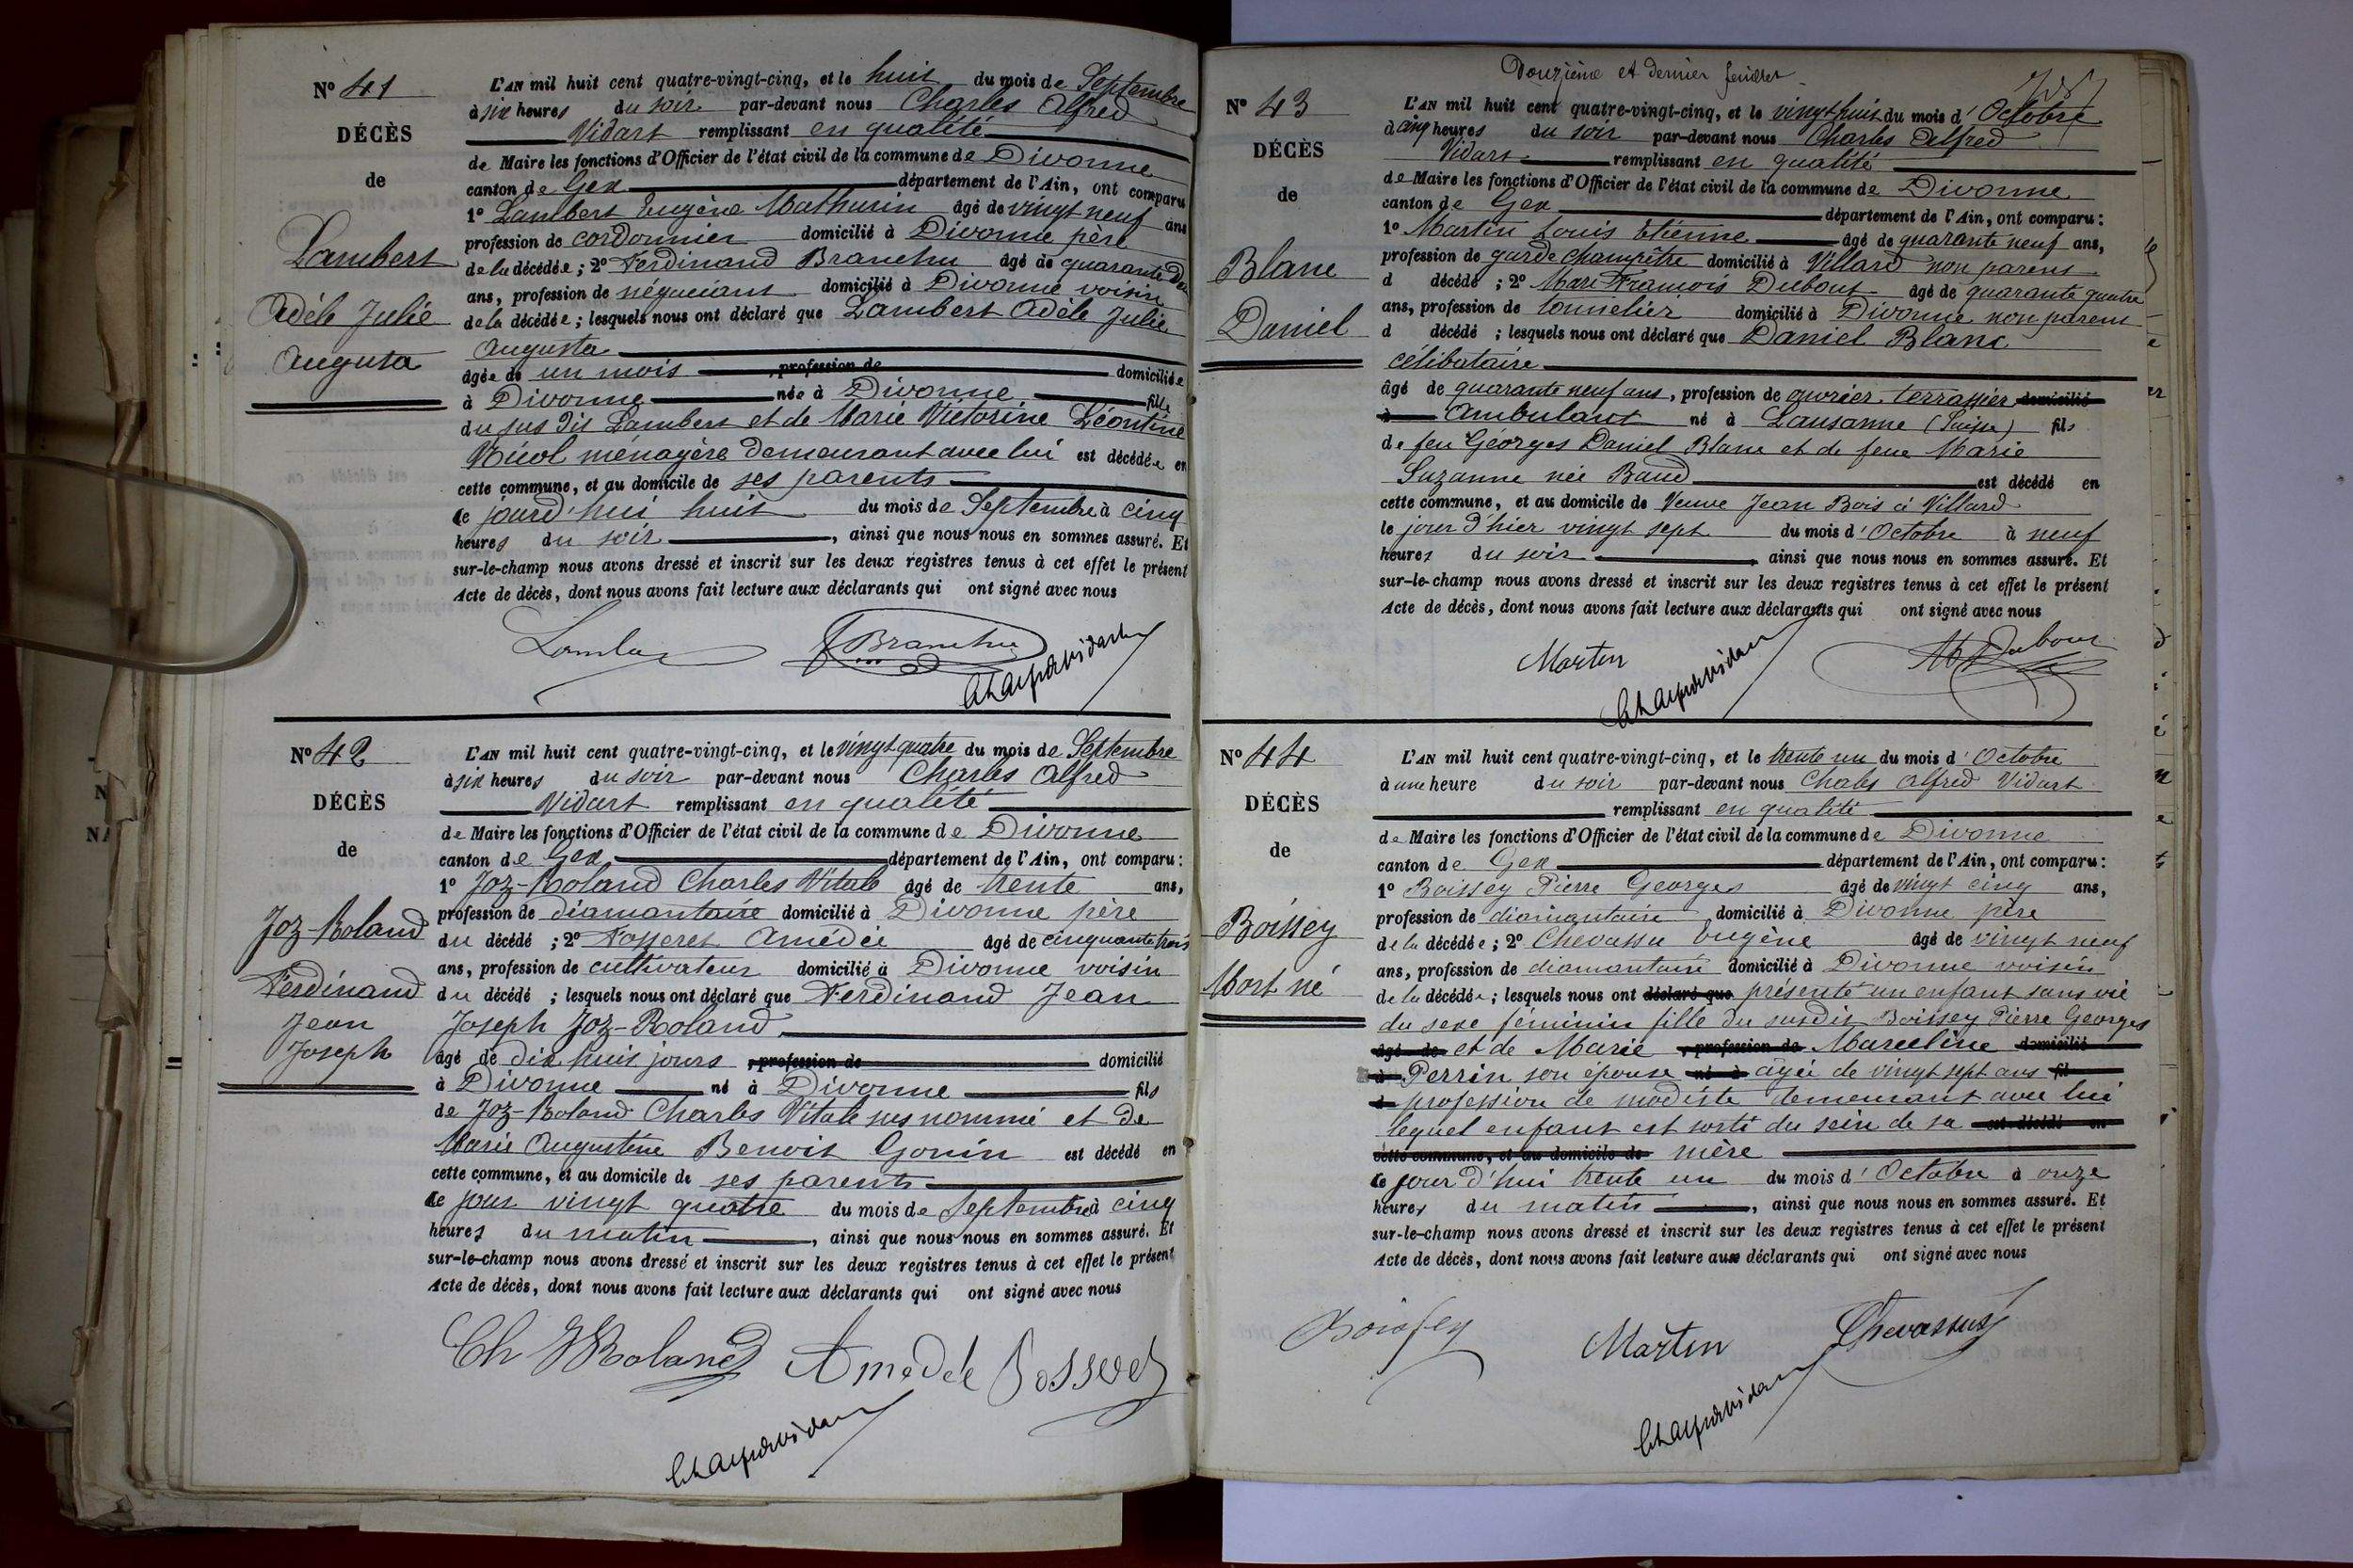 N° 41
DÉCÈS
de
Lambert
Adèle Julie
Augusta
L'AN mil huit cent quatre-vingt-cinq, et le huit du mois de Septembre
à six heures du soir par-devant nous Charles Alfred
Vidart remplissant en qualité
de Maire les fonctions d'Officier de l'état civil de la commune de Divonne
canton de Gex département de l'Ain, ont comparu
1° Lambert Eugène Mathurin âgé de vingt neuf ans
profession de cordonnier domicilié à Divonne père
de la décédée ; 2° Ferdinand Branchu âgé de quarante deux
ans, profession de négociant domicilié à Divonne voisin
de la décédée ; lesquels nous ont déclaré que Lambert Adèle Julie
Augusta
âgée de un mois profession de domiciliée
à Divonne née à Divonne fille
du sus dit Lambert et de Marie Victorine Léontine
Nicol ménagère demeurant avec lui est décédée en
cette commune, et au domicile de ses parents
le jourd'hui huit du mois de Septembre à cinq
heures du soir , ainsi que nous nous en sommes assuré. Et
sur-le-champ nous avons dressé et inscrit sur les deux registres tenus à cet effet le présent
Acte de décès, dont nous avons fait lecture aux déclarants qui ont signé avec nous
Branchu
N° 42
DÉCÈS
de
Joz-Roland
Ferdinand
Jean
Joseph
L'AN mil huit cent quatre-vingt-cinq, et le vingt quatre du mois de Septembre
à six heures du soir par-devant nous Charles Alfred
Vidart remplissant en qualité
de Maire les fonctions d'Officier de l'état civil de la commune de Divonne
canton de Gex département de l'Ain, ont comparu :
1° Joz-Roland Charles Vitale âgé de trente ans,
profession de diamantaire domicilié à Divonne père
du décédé ; 2° Fosseret Amédée âgé de cinquante trois
ans, profession de cultivateur domicilié à Divonne voisin
du décédé ; lesquels nous ont déclaré que Ferdinand Jean
Joseph Joz-Roland
âgé de dix huit jours , profession de domicilié
à Divonne né à Divonne fils
de Joz-Roland Charles Vitale sus nommé et de
Marie Augustine Benoit Gonin est décédé en
cette commune, et au domicile de ses parents
le jour vingt quatre du mois de Septembre à cinq
heures du matin , ainsi que nous nous en sommes assuré. Et
sur-le-champ nous avons dressé et inscrit sur les deux registres tenus à cet effet le présent
Acte de décès, dont nous avons fait lecture aux déclarants qui ont signé avec nous
Ch JRoland Amedée Fosseret
Douzième et dernier feuillet
N° 43
DÉCÈS
de
Blanc
Daniel
L'AN mil huit cent quatre-vingt-cinq, et le vingt huit du mois d'Octobre
à cinq heures du soir par-devant nous Charles Alfred
Vidart remplissant en qualité
de Maire les fonctions d'Officier de l'état civil de la commune de Divonne
canton de Gex département de l'Ain, ont comparu :
1° Martin Louis Etienne âgé de quarante neuf ans,
profession de garde champêtre domicilié à Villard non parent
d décédé ; 2° Marc François Dubout âgé de quarante quatre
ans, profession de tonnelier domicilié à Divonne non parent
d décédé ; lesquels nous ont déclaré que Daniel Blanc
célibataire
âgé de quarante neuf ans , profession de ouvrier terrassier domicilié
à ambulant né à Lausanne (Suisse) fils
de feu Géorges Daniel Blanc et de feue Marie
Suzanne née Baud est décédé en
cette commune, et au domicile de Veuve Jean Bois à Villard
le jour d'hier vingt sept du mois d'Octobre à neuf
heures du soir ainsi que nous nous en sommes assuré. Et
sur-le-champ nous avons dressé et inscrit sur les deux registres tenus à cet effet le présent
Acte de décès, dont nous avons fait lecture aux déclarants qui ont signé avec nous
Martin
N° 44
DÉCÈS
de
Boissey
Mort né
L'AN mil huit cent quatre-vingt-cinq, et le trente un du mois d'Octobre
à une heure du soir par-devant nous Chales Alfred Vidart
remplissant en qualité
de Maire les fonctions d'Officier de l'état civil de la commune de Divonne
canton de Gex département de l'Ain, ont comparu :
1° Boissey Pierre Georges âgé de vingt cinq ans,
profession de diamantaire domicilié à Divonne père
de la décédée ; 2° Chevassu Eugène âgé de vingt neuf
ans, profession de diamantaire domicilié à Divonne voisin
de la décédée ; lesquels nous ont déclaré que présenté un enfant sans vie
du sexe féminin fille du susdit Boissey Pierre Georges
âgé de et de Marie , profession de Marceline domicilié
à Perrin son épouse né à agée de vingt sept ans fil
d profession de modiste demeurant avec lui
lequel enfant est sorti du sein de sa est décédé en
cette commune, et au domicile de mère
le jour d'hui trente un du mois d'Octobre à onze
heures du matin , ainsi que nous nous en sommes assuré. Et
sur-le-champ nous avons dressé et inscrit sur les deux registres tenus à cet effet le présent
Acte de décès, dont nous avons fait lecture aux déclarants qui ont signé avec nous
Boissey Martin Chevassus